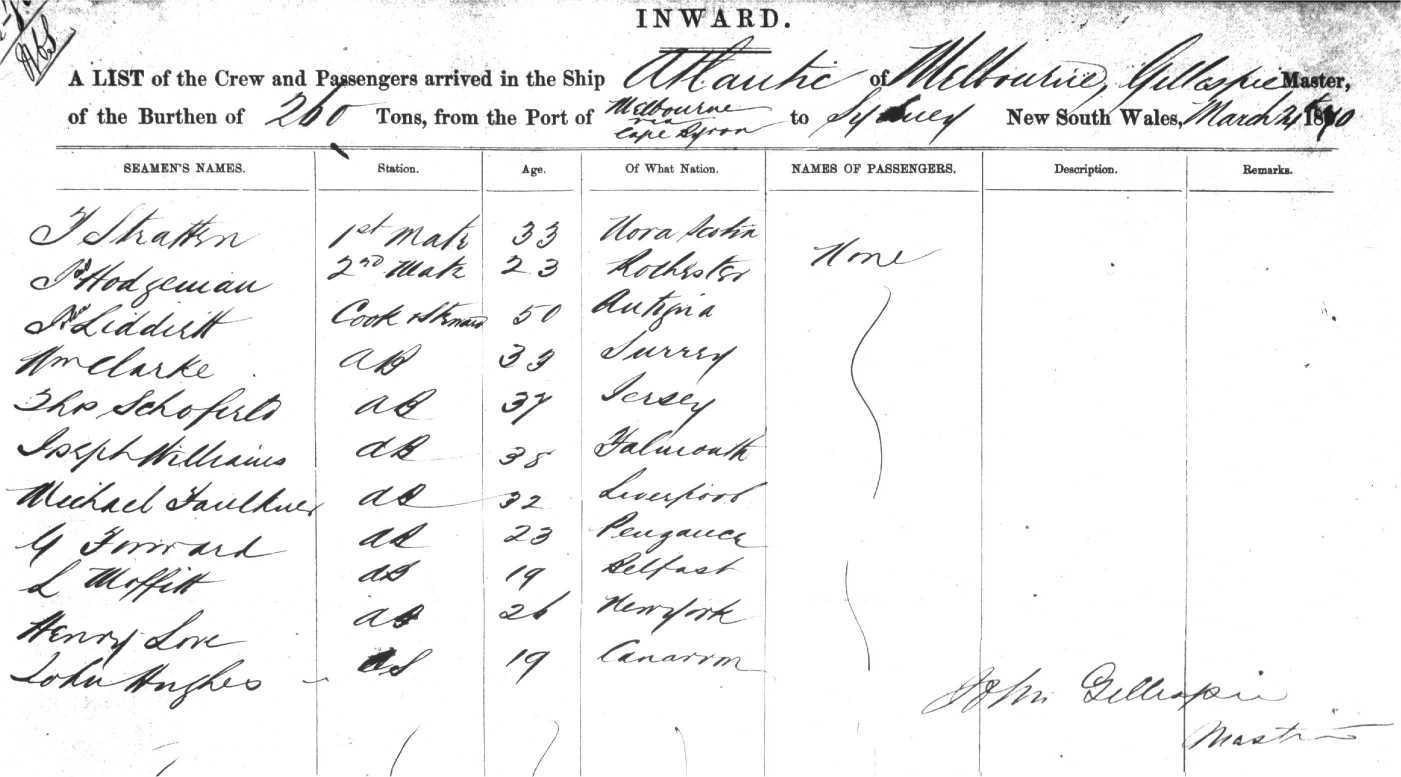 INWARD.
A LIST of the Crew and Passengers arrived in the Ship Atlantic of Melbourne, Gillespie Master,
of the Burthen of 260 Tons, from the Port of Melbourne via Cape Byron to Sydney New South Wales, March 1870
SEAMEN'S NAMES. Station. Age. Of What Nation. NAMES OF PASSENGERS. Description. Remarks.
Stratten 1st Mate 33 Nova Scotia None
Hodgeman 2nd Mate 23 Rochester
Cook & Steward 50 Antigua
Wm Clarke AB 33 Surrey
Thos Schofield AB 37 Jersey
Joseph Williams AB 38 Falmouth
Michael Faulkner AB 32 Liverpool
G Forward AB 23 Penzance
L Moffitt 19 Belfast
Henry Love AB 26 New York
John Hughes OS 19
John Gillespie
Master